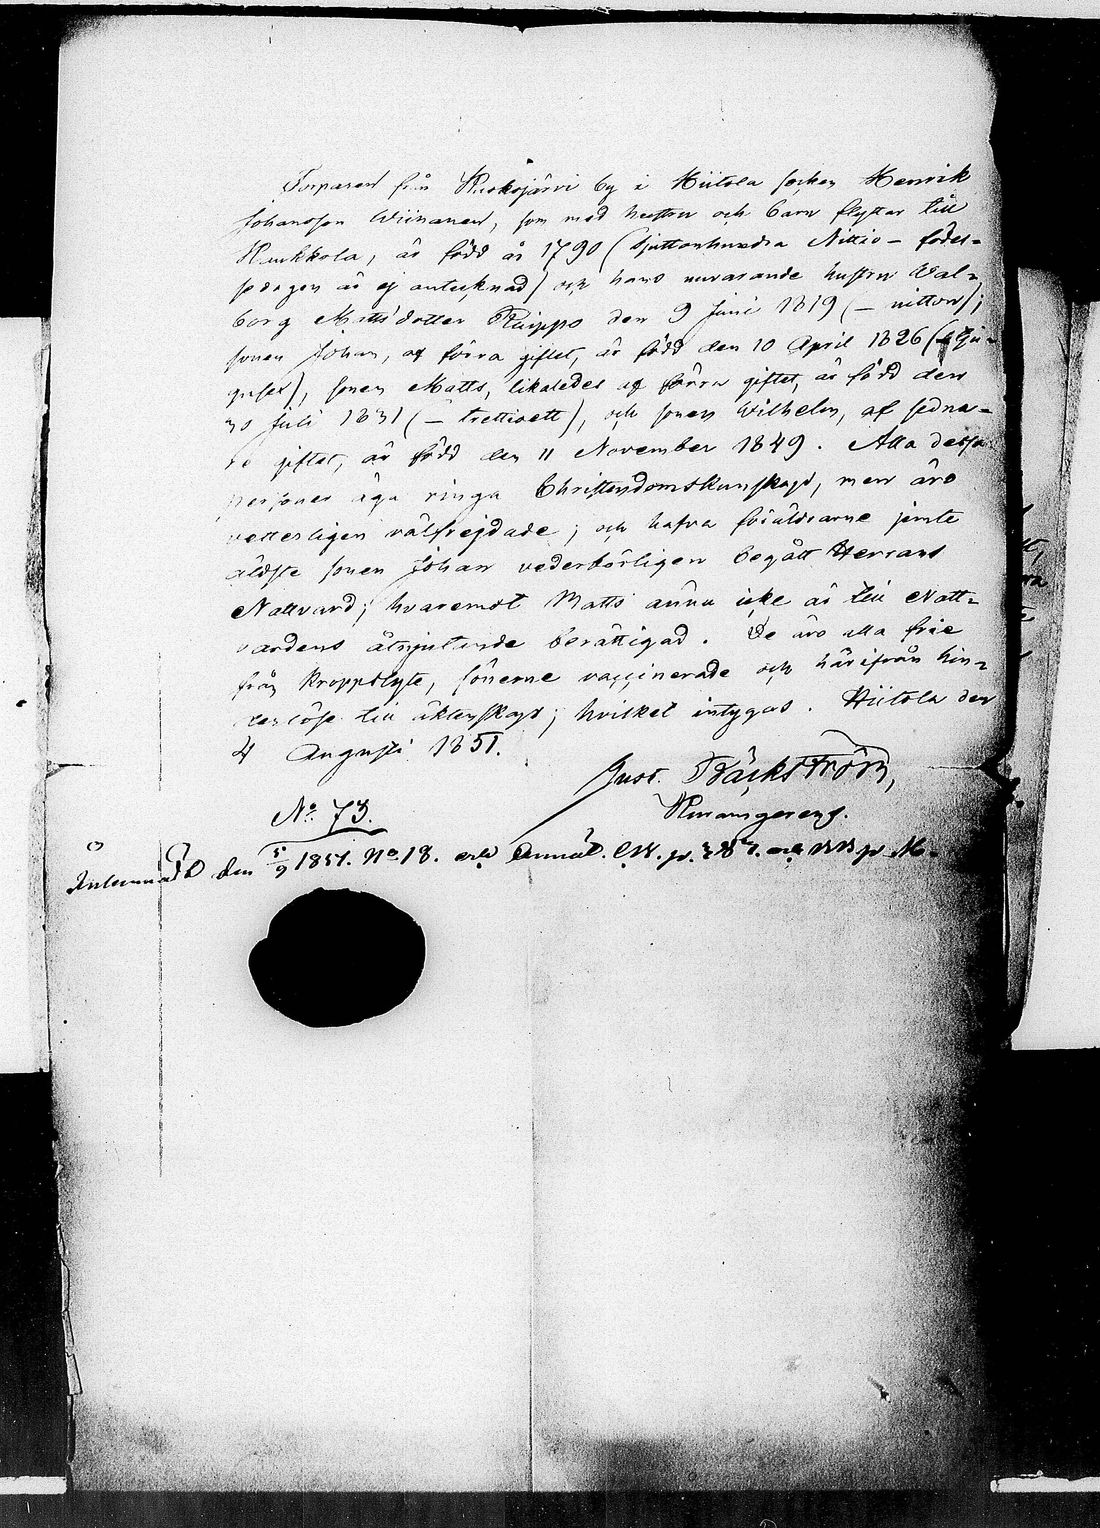 Torparen från Kuokojärvi by i Hiitola socken Henrik
Johansson Wiinanen, som med hustru och barn flyttar till
Huukkola, är född år 1790 (sjuttonhundra Nittio – födel-
sedagen är ej antecknad) och hans nuvarande hustru Wal-
borg Mattsdotter Kuippo den 9 Juni 1819 (– nitton);
sonen Johan, af förra giftet, är född den 10 April 1826 (– tju-
gusex), sonen Matts, likaledes af förra giftet, är född den
Juli 1831 (– trettioett), och sonen Wilhelm, af sedna-
re giftet, är född den 11 November 1849. Alla dessa
personer äga ringa Christendomskunskap, men äro
vetterligen välfrejdade; och hafva föräldrarne jemte
äldste sonen Johan vederbörligen begått Herrans
Nattvard; hvaremot Matts ännu icke är till Natt-
vardens åtnjutande berättigad. De äro alla frie
från kroppslyte, sönerne vaccinerade och härifrån hin-
derlöse till äktenskap; hvilket intygas. Hiitola den
4 Augusti 1851.
Gust. Bäckström,
No. 73.
den 5/9 1851. No 18.